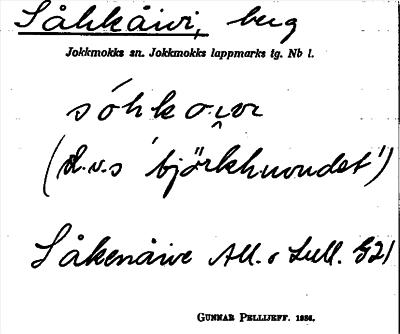 Såkkåivi, berg
Jokkmokks sn. Jokkmokks lappmarks tg. Nb l.
sóhkoi̯vi
(d.v.s 'björkhuvudet')
Såkenåive All. o Lull. G21
GUNNAR PELLIJEFF. 1956.